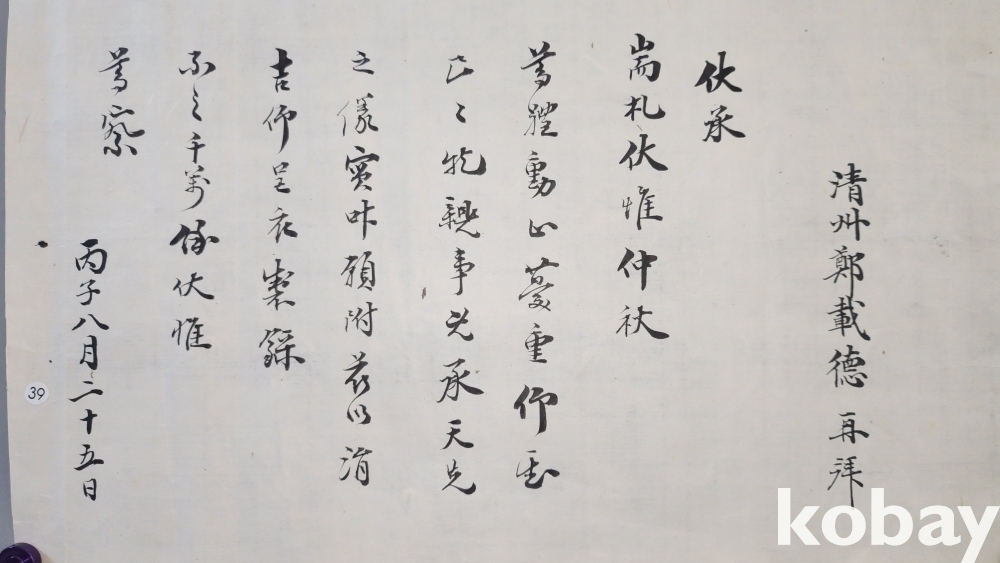 清州鄭載德 再拜
伏承
耑札伏惟仲秋
尊體動止萬重仰慰
區々 親事 承
之儀實叶願附玆以涓
吉仰呈衣製錄
示之千萬餘伏惟
尊察
丙子八月二十五日
39
kobay